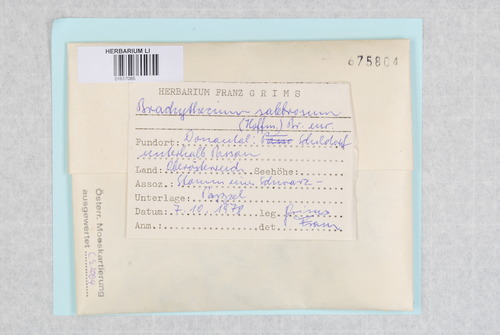 HERBARIUM LI
675864
HERBARIUM FRANZ GRIMS
Brachythecium salebrosum
(Hoffm.) Br. eur.
Fundort: Donautal Schildorf
unterhalb Passau
Land: Oberösterreich Seehöhe:
Assoz. Stamm einer Schwarz-
Unterlage: Pappel
Datum: 7.10.1979 leg. Grims
Anm.: det. Franz
Österr. Mooskartierung
ausgewertet